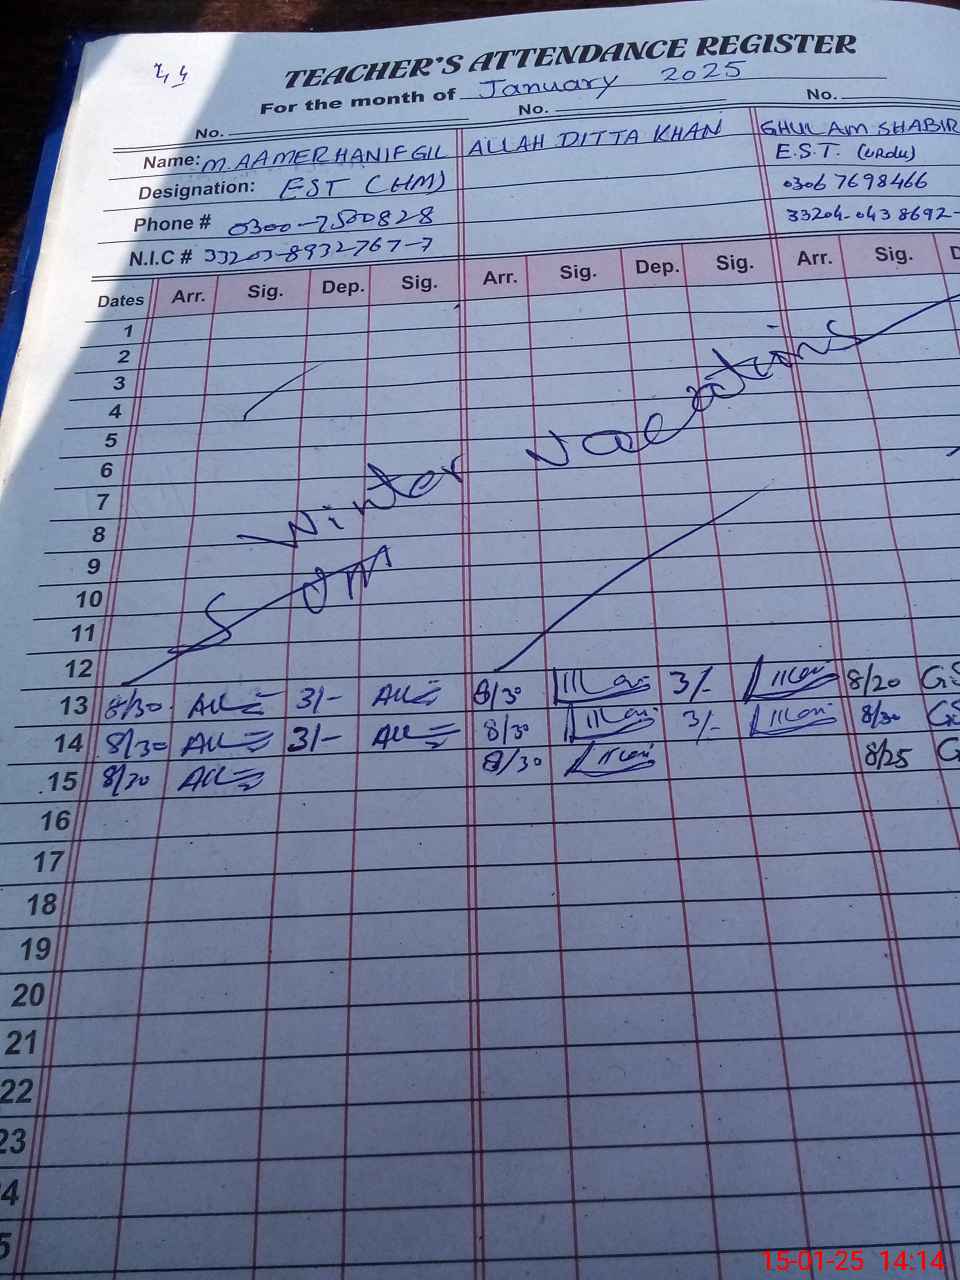 TEACHER'S ATTENDANCE REGISTER
For the month of January 2025
No. No. No.
Name: M. AAMER HANIF GIL ALLAH DITTA KHAN GHULAM SHABIR
Designation: EST (HM) E.S.T. (URDU)
Phone # 0300-7500828 0306 7698466
N.I.C # 33203-8932767-7 33204-0438692-
Dates Arr. Sig. Dep. Sig. Arr. Sig. Dep. Sig. Arr. Sig. D
1
2
3
4
5
6
Winter Vacations
7
8
9
10
11
12
13 8/30 3/- 8/30 3/- 8/20 GS
14 8/30 3/- 8/30 3/- 8/30 GS
15 8/30 8/30 8/25 G
16
17
18
19
20
21
22
23
4
5
15-01-25 14:14